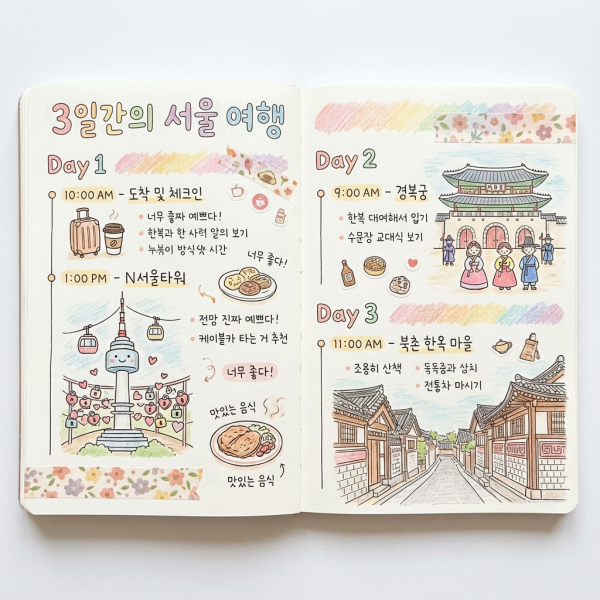 3일간의 서울 여행
Day 1
10:00 AM – 도착 및 체크인
너무 좋짜 예쁘다!
한복과 한 사력 알의 보기
누봇이 방식댯 시간
너무 좋다!
1:00 PM – N서울타워
전망 진짜 예쁘다!
케이블카 타는 거 추천
너무 좋다!
맛있는 음식
맛있는 음식
Day 2
9:00 AM – 경복궁
한복 대여해서 입기
수문장 교대식 보기
Day 3
11:00 AM – 북촌 한옥 마을
조용히 산책
둑둑증과 상치
전통차 마시기